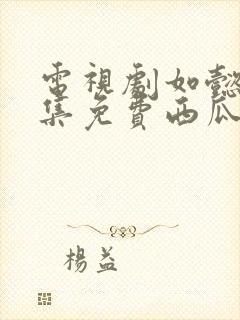 電視劇如懿
集免費西瓜
楊益